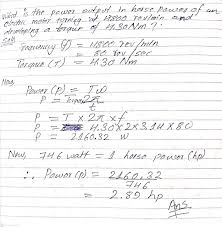 What is the power output in horse power of an
electric motor turning at 4800 rev/min and
developing a torque of 4.30 Nm?
Soln
Frequency (f) = 4800 rev/min
= 80 rev/sec
Torque (T) = 4.30 Nm
Now,
Power (P) = Tω
P = T×2πf
P = T × 2πf
P = 4.30×2×3.14×80
P = 2160.32 w
Now, 746 watt = 1 horse power (hp)
∴ Power (P) = 2160.32
746
= 2.89 hp
Ans.